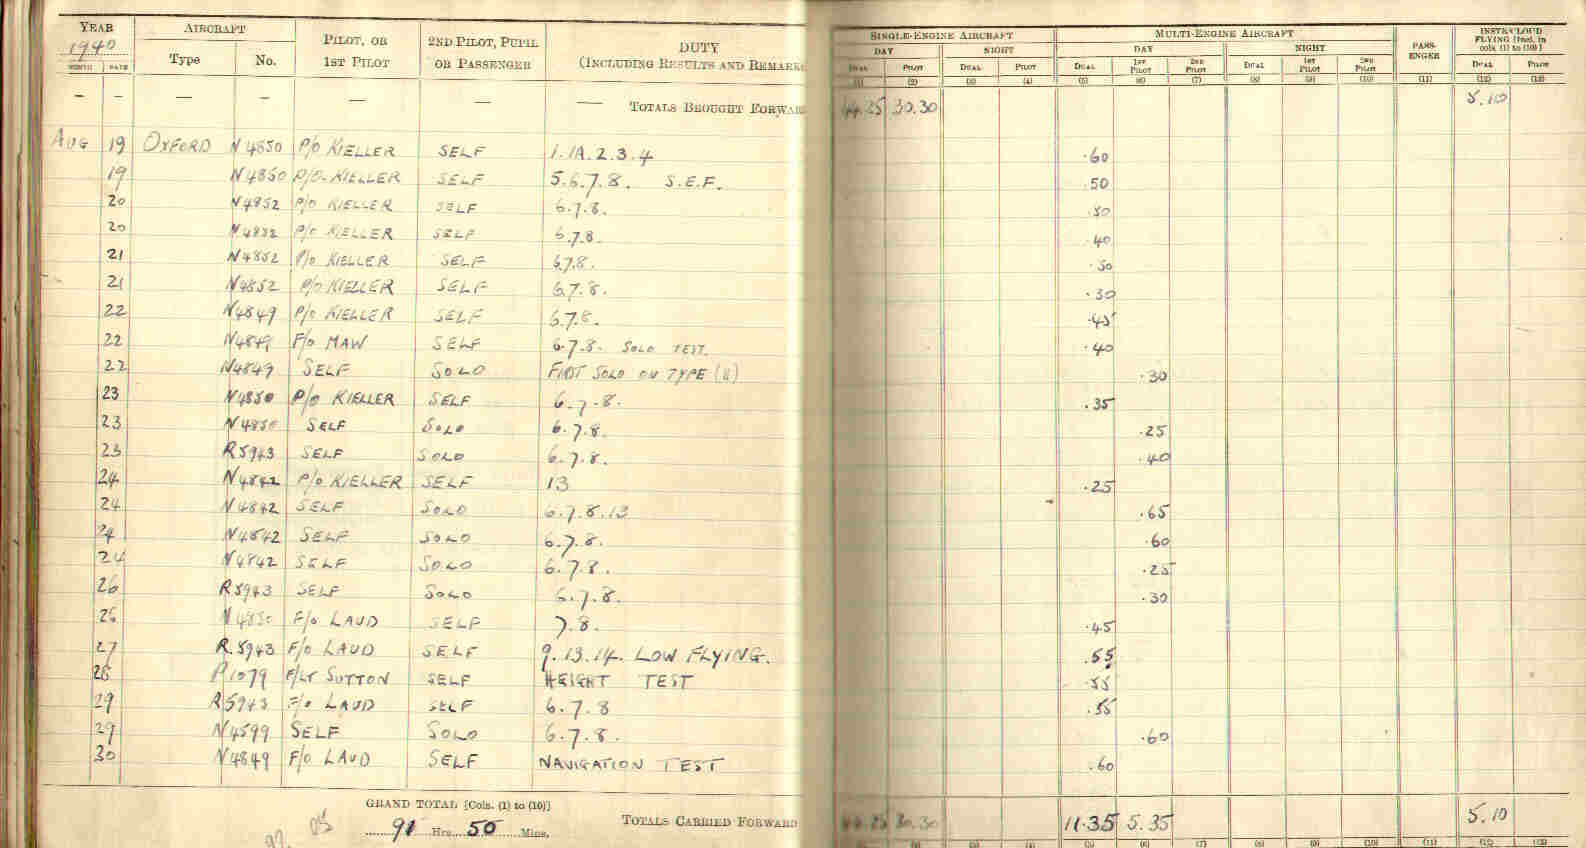 YEAR AIRCRAFT PILOT, OR 1ST PILOT 2ND PILOT, PUPIL OR PASSENGER DUTY (INCLUDING RESULTS AND REMARKS SINGLE-ENGINE AIRCRAFT MULTI-ENGINE AIRCRAFT PASS-ENGER INSTR/CLOUD FLYING [Incl. in cols. (1) to (10)]
1940 Type No. DAY NIGHT DAY NIGHT
MONTH DATE DUAL PILOT DUAL PILOT DUAL 1ST PILOT 2ND PILOT DUAL 1ST PILOT 2ND PILOT DUAL PILOT
(1) (2) (3) (4) (5) (6) (7) (8) (9) (10) (11) (12) (13)
— — — — — — — TOTALS BROUGHT FORWARD 44.25 30.30 5.10
AUG 19 OXFORD N4850 P/O KIELLER SELF 1.1A.2.3.4 .60
19 N4850 P/O. KIELLER SELF 5.6.7.8. S.E.F. .50
20 N4852 P/O KIELLER SELF 6.7.8. .50
20 N4852 P/O KIELLER SELF 6.7.8. .40
21 N4852 P/O KIELLER SELF 6.7.8. .50
21 N4852 P/O KIELLER SELF 6.7.8. .30
22 N4849 P/O KIELLER SELF 6.7.8. .45
22 N4849 F/O MAW SELF 6.7.8. SOLO TEST. .40
22 N4849 SELF SOLO FIRST SOLO ON TYPE .30
23 N4850 P/O KIELLER SELF 6.7.8. .35
23 N4850 SELF SOLO 6.7.8. .25
23 R5943 SELF SOLO 6.7.8. .40
24 N4842 P/O KIELLER SELF 13 .25
24 N4842 SELF SOLO 6.7.8.13 .65
24 N4842 SELF SOLO 6.7.8. .60
24 N4842 SELF SOLO 6.7.8. .25
26 R5943 SELF SOLO 6.7.8. .30
26 N4850 F/O LAUD SELF 7.8. .45
27 R.5943 F/O LAUD SELF 9.13.14. LOW FLYING. .55
28 P1079 F/LT SUTTON SELF HEIGHT TEST .55
29 R5943 F/O LAUD SELF 6.7.8 .55
29 N4599 SELF SOLO 6.7.8. .60
30 N4849 F/O LAUD SELF NAVIGATION TEST .60
GRAND TOTAL [Cols. (1) to (10)]
91 Hrs. 50 Mins. TOTALS CARRIED FORWARD 44.25 30.30 11.35 5.35 5.10
92. 05
(3) (4) (5) (6) (7) (8) (9) (10) (11) (12) (13)